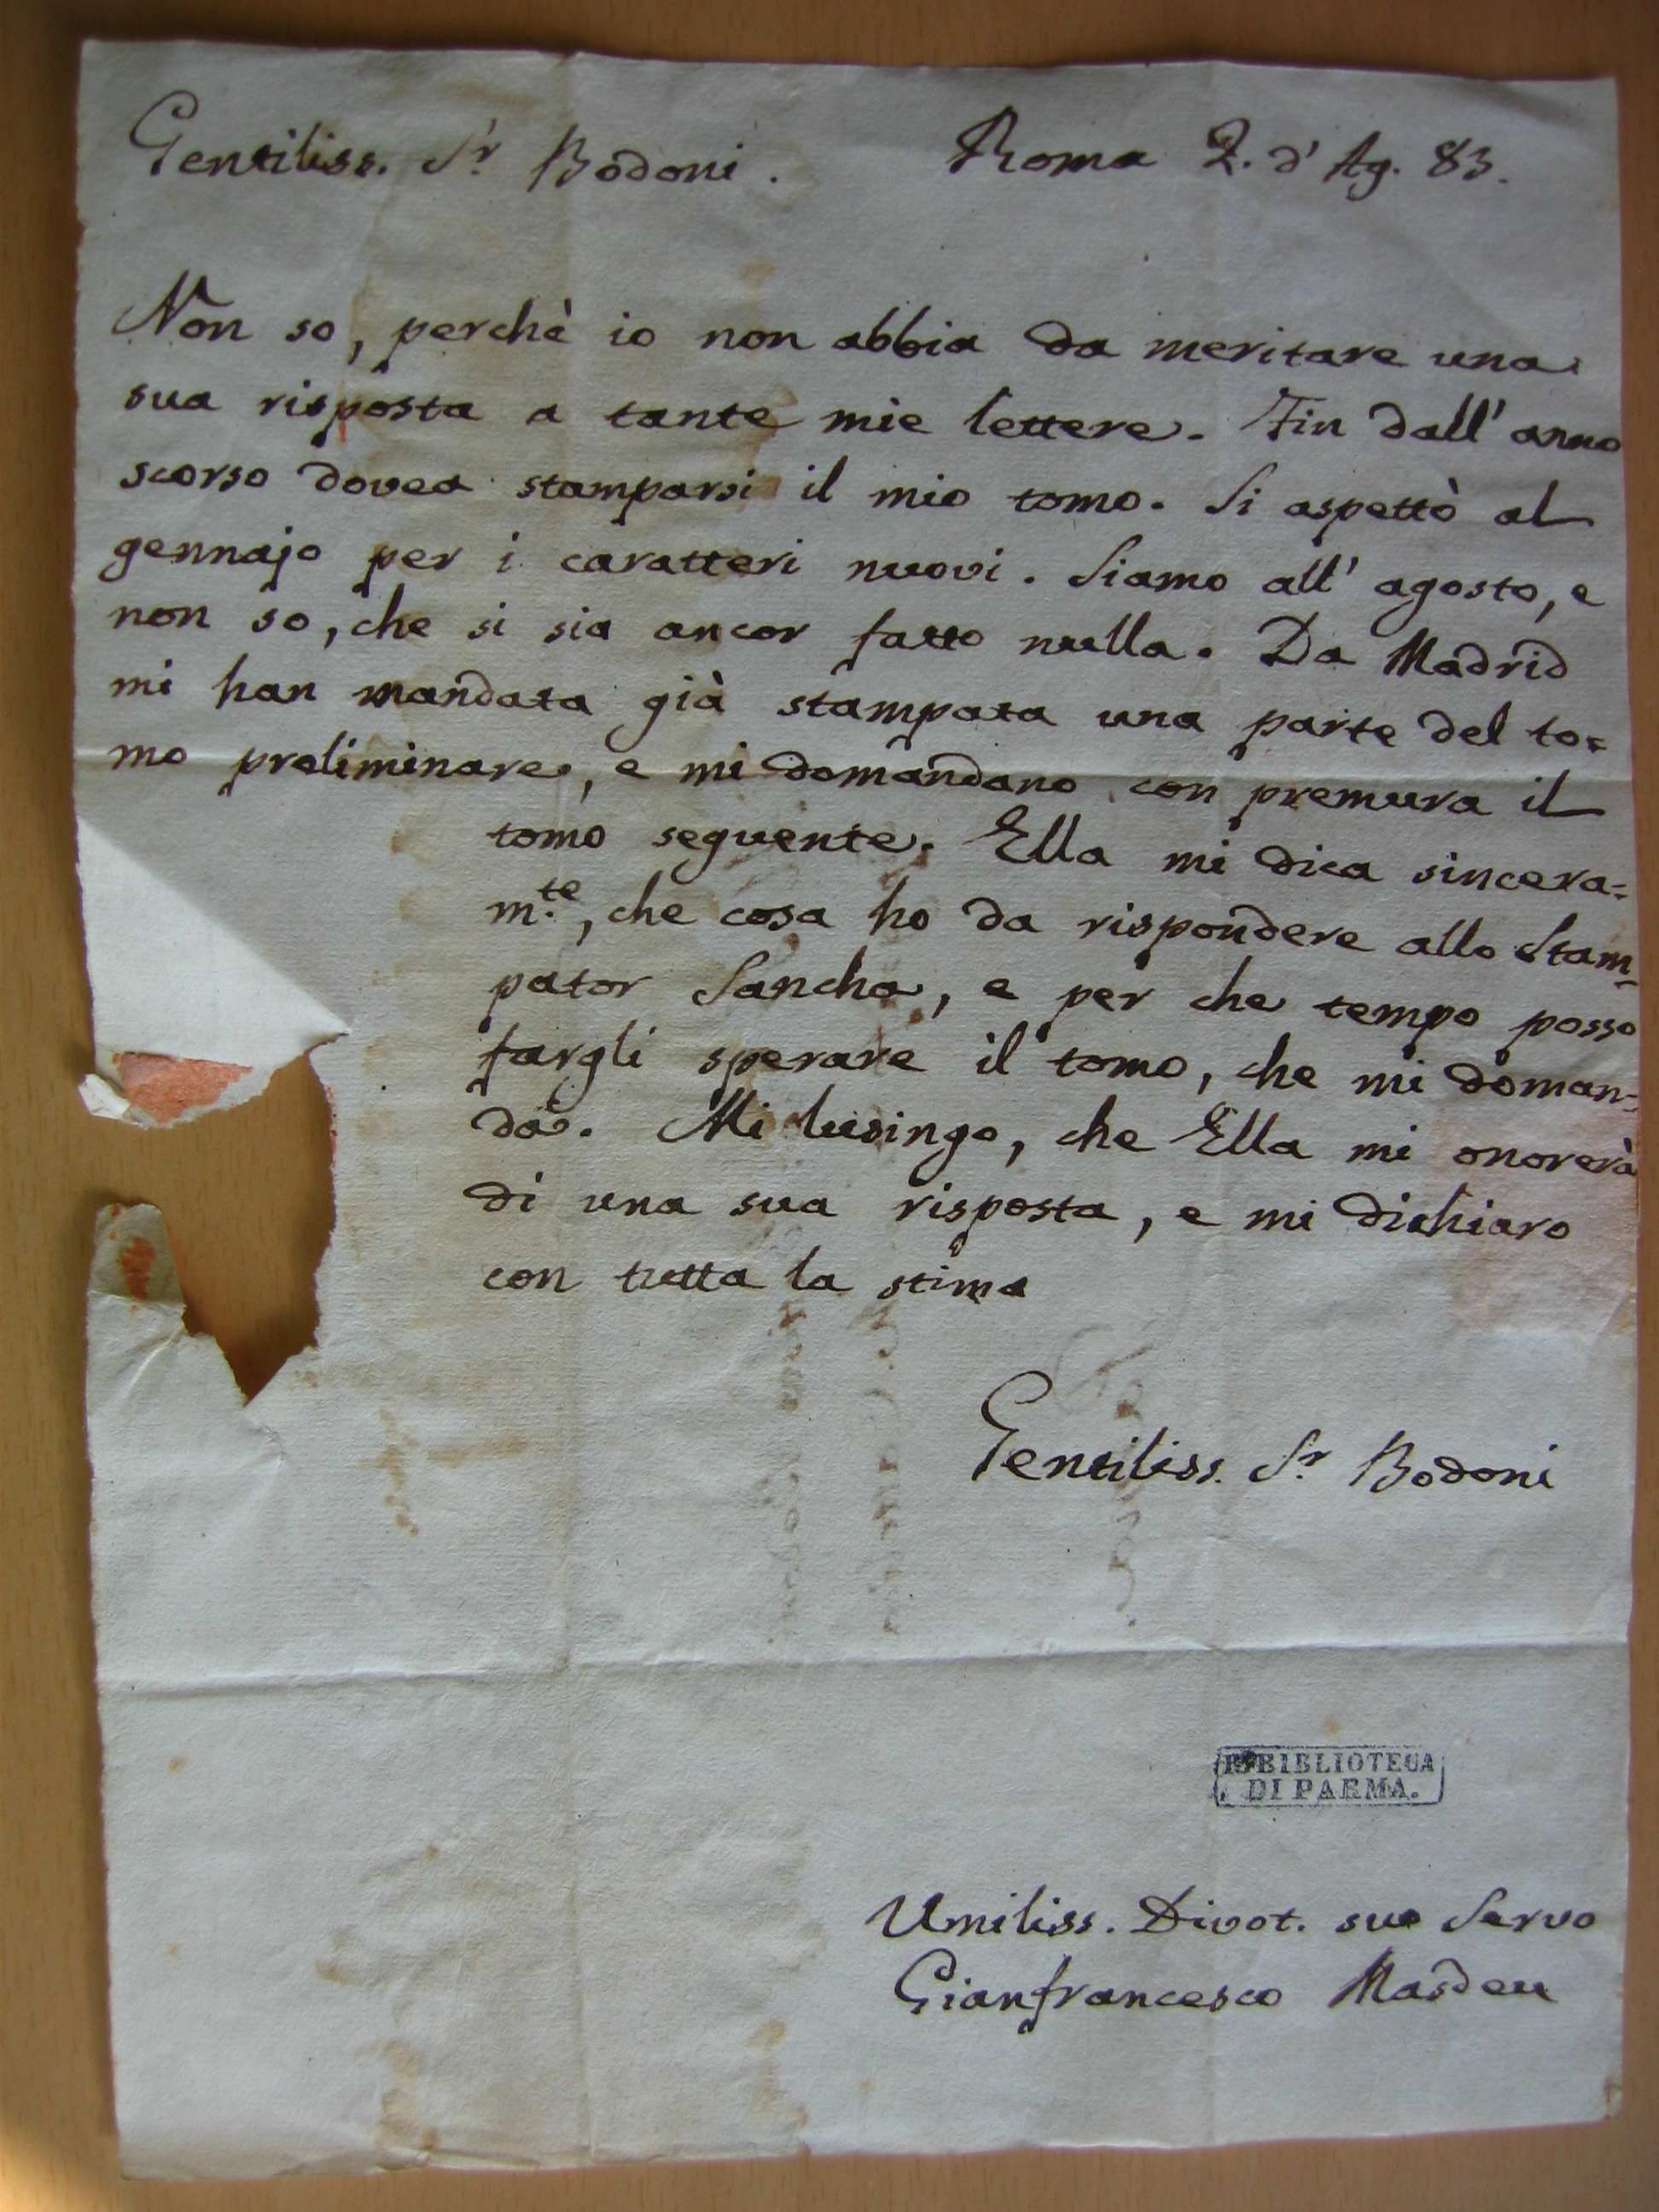 Gentiliss. Sr. Bodoni. Roma 2. d' Ag. 83.
Non so, perchè io non abbia da meritare una
sua risposta a tante mie lettere. Fin dall' anno
scorso dovea stamparsi il mio tomo. Si aspettò al
gennajo per i caratteri nuovi. Siamo all' agosto, e
non so, che si sia ancor fatto nulla. Da Madrid
mi han mandata già stampata una parte del to=
mo preliminare, e mi domandano con premura il
tomo seguente. Ella mi dica sincera=
m.te, che cosa ho da rispondere allo Stam=
pator Sancha, e per che tempo posso
fargli sperare il tomo, che mi doman=
da. Mi lusingo, che Ella mi onorerà
di una sua risposta, e mi dichiaro
con tutta la stima
Gentiliss. Sr. Bodoni
BIBLIOTECA
DI PARMA.
Umiliss. Divot. suo Servo
Gianfrancesco Masdeu